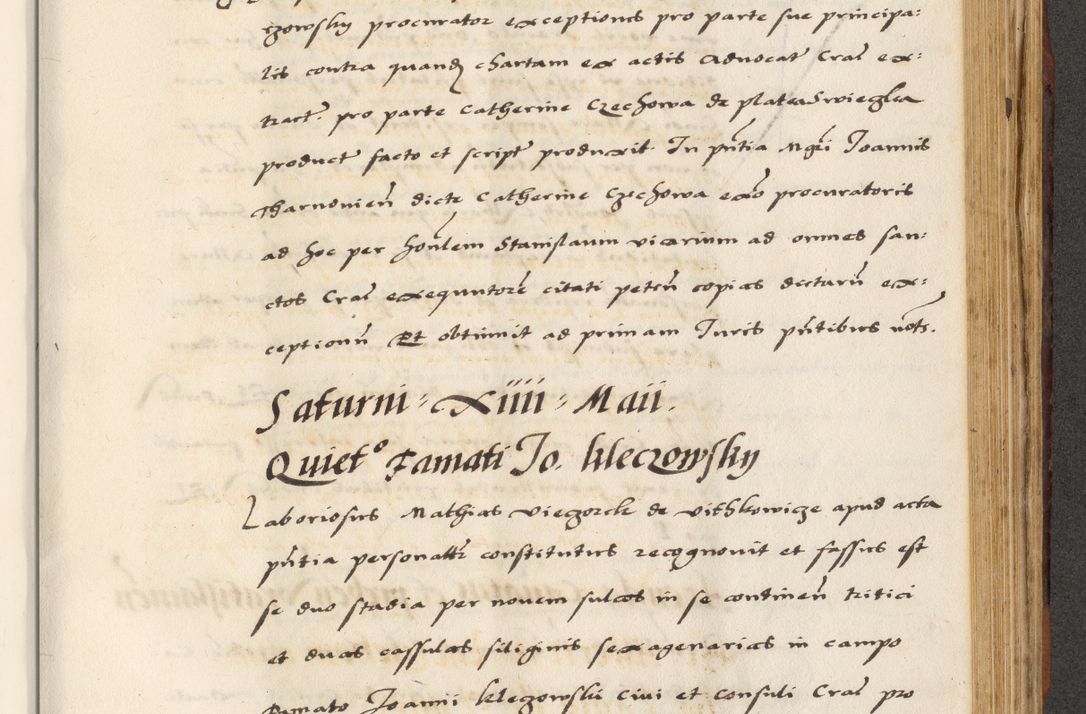 rzowsky procurator exceptiones pro parte sue principa:
lis contra quandā chartam ex actis Advocat Crač ex:
tract. pro parte Catherine Czechowa de platea Swieglea
product facto et script produxit. In pñtia Mgri Joannis
Tharnovieñ dicte Catherine Czechowa exo procuratoris
ad hoc per honlem Stanislaum vicarium ad omnes san:
ctos Crac exequutore citati peteñ copias dictarũ ex:
ceptionũ Et obtinuit ad primam Juris pñtibus nots.
Saturni XIIII Maii.
Quiet° Famati Jo. kleczowsky
Laboriosus Mathias Viegorek de Vithkowicze apud acta
pñtia personalr constitutus recognovit et fassus est
se duo stadia per novem sulcos in se contineñ tritici
et duas cassulas siliginis sexagenarias in campo
Famato Joanni klegowski civi et consuli Crac pro